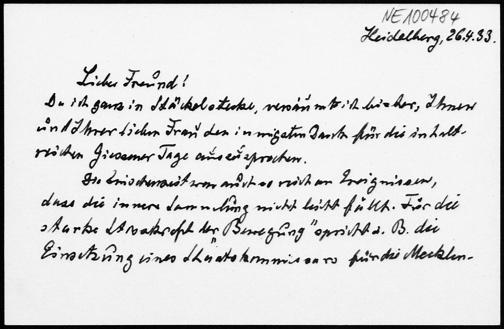 NE100484
Heidelberg, 26.4.33.
Lieber Freund!
Da ich ganz in Stäckel stecke, versäumte ich bisher, Ihnen
und Ihrer lieben Frau den innigsten Dank für die inhalt-
reichen Giessener Tage auszusprechen.
Die Zwischenzeit war auch so reich an Ereignissen,
dass die innere Sammlung nicht leicht fällt. Für die
starke Stosskraft der Bewegung" spricht z. B. die
Einsetzung eines Staatskommissars für die Mecklen-